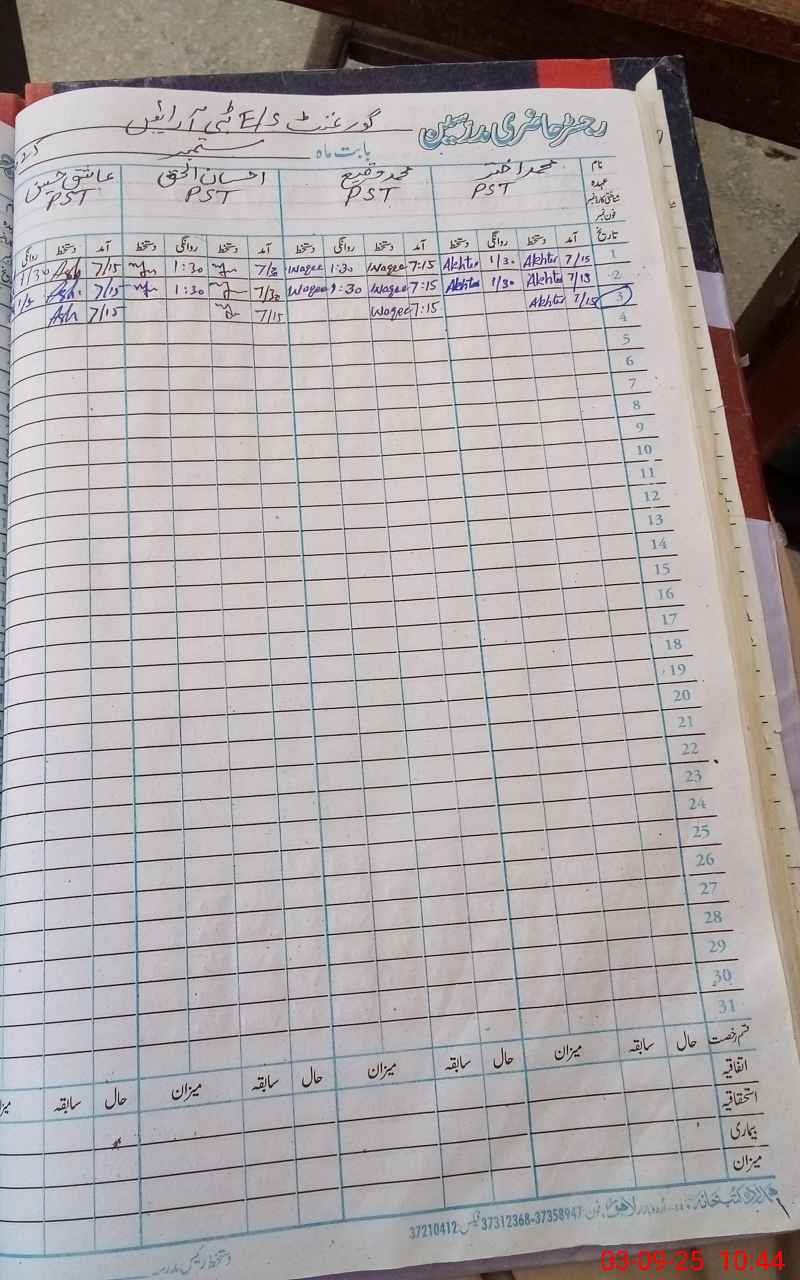 رجسٹر حاضری مدرسین گورنمنٹ E/S ٹبی آرائیں
بابت ماہ ستمبر
نام محمد اختر محمد وقیع احسان الحق عاشق حسین
عہدہ PST PST PST PST
شناختی کارڈ نمبر
فون نمبر
تاریخ آمد دستخط روانگی دستخط آمد دستخط روانگی دستخط آمد دستخط روانگی دستخط آمد دستخط روانگی
1 7/15 Akhtar 1/30 Akhtar 7:15 Waqee 1:30 Waqee 7/30 1:30 7/15 Ash 1/30
2 7/15 Akhtar 1/30 Akhtar 7:15 Waqee 1:30 Waqee 7/30 1:30 7/15 Ash
3 7/15 Akhtar 7:15 Waqee 7/15 7/15 Ash
4
5
6
7
8
9
10
11
12
13
14
15
16
17
18
19
20
21
22
23
24
25
26
27
28
29
30
31
قسم رخصت حال سابقہ میزان حال سابقہ میزان حال سابقہ میزان حال سابقہ
اتفاقیہ
استحقاقیہ
بیماری
میزان
اردو بازار لاہور فون: 37358947-37312368 فیکس: 37210412
دستخط رئیس مدرسہ
03-09-25 10:44